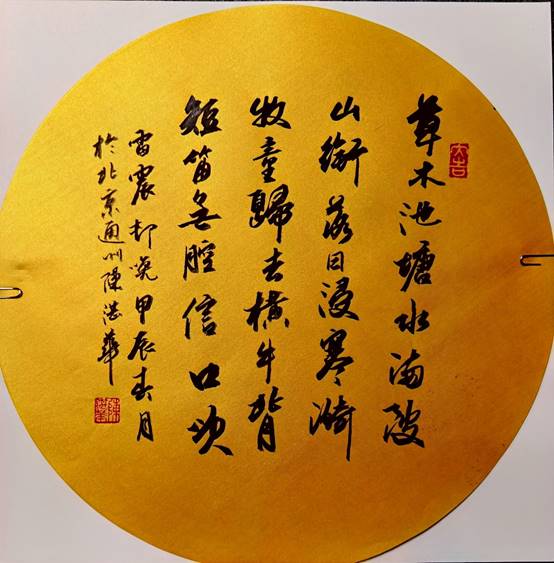 大吉
草木池塘水滿陂
山銜落日浸寒漪
牧童歸去橫牛背
短笛無腔信口吹
雷震邨晚甲辰春月
於北京通州陳華